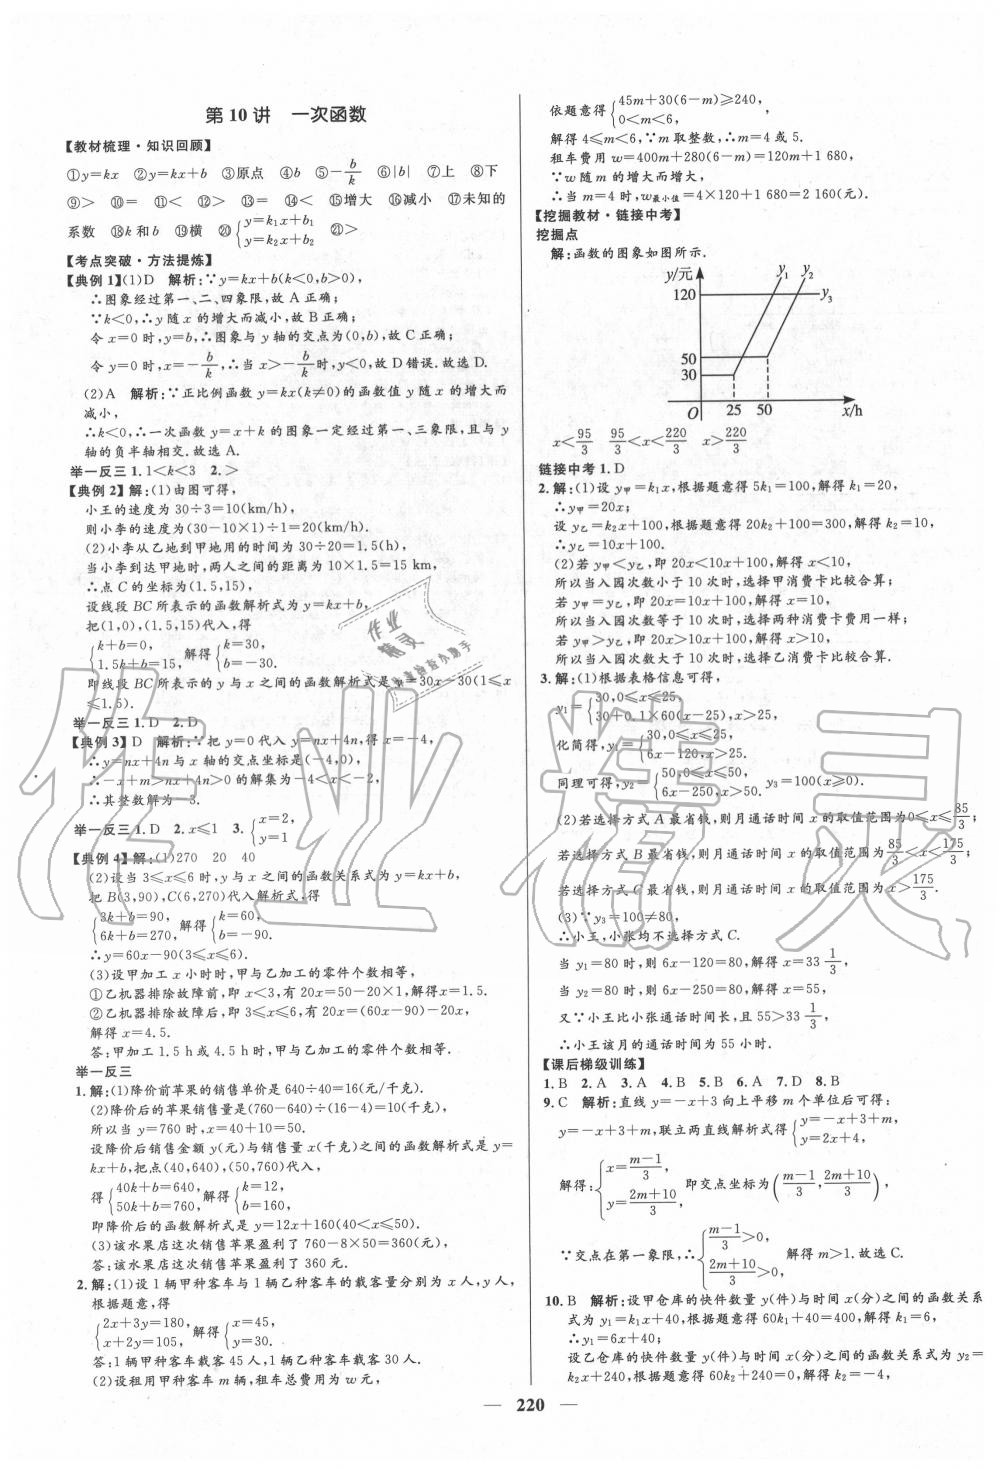 第 10 讲　一次函数
【教材梳理·知识回顾】
①y=kx　②y=kx+b　③原点　④b　⑤-b/k　⑥|b|　⑦上　⑧下
⑨>　⑩=　⑪<　⑫>　⑬=　⑭<　⑮增大　⑯减小　⑰未知的
系数　⑱k和b　⑲横　⑳{y=k₁x+b₁ y=k₂x+b₂　㉑>
【考点突破·方法提炼】
【典例 1】(1)D　解析:∵y=kx+b(k<0,b>0),
∴图象经过第一、二、四象限,故 A 正确;
∵k<0,∴y 随 x 的增大而减小,故 B 正确;
令 x=0 时,y=b,∴图象与 y 轴的交点为(0,b),故 C 正确;
令 y=0 时,x=-b/k,∴当 x>-b/k时,y<0,故 D 错误.故选 D.
(2)A　解析:∵正比例函数 y=kx(k≠0)的函数值 y 随 x 的增大而
减小,
∴k<0,∴一次函数 y=x+k 的图象一定经过第一、三象限,且与 y
轴的负半轴相交.故选 A.
举一反三 1. 1<k<3　2. >
【典例 2】解:(1)由图可得,
小王的速度为 30÷3=10(km/h),
则小李的速度为(30-10×1)÷1=20(km/h).
(2)小李从乙地到甲地用的时间为 30÷20=1.5(h),
当小李到达甲地时,两人之间的距离为 10×1.5=15 km,
∴点 C 的坐标为(1.5,15),
设线段 BC 所表示的函数解析式为 y=kx+b,
把(1,0),(1.5,15)代入,得
{k+b=0, 1.5k+b=15,解得{k=30, b=-30.
即线段 BC 所表示的 y 与 x 之间的函数解析式是 y=30x-30(1≤x
≤1.5).
举一反三 1. D　2. D
【典例 3】D　解析:∵把 y=0 代入 y=nx+4n,得 x=-4,
∴y=nx+4n 与 x 轴的交点坐标是(-4,0),
∴-x+m>nx+4n>0 的解集为-4<x<-2,
∴其整数解为-3.
举一反三 1. D　2. x≤1　3. {x=2, y=1
【典例 4】解:(1)270　20　40
(2)设当 3≤x≤6 时,y 与 x 之间的函数关系式为 y=kx+b,
把 B(3,90),C(6,270)代入解析式,得
{3k+b=90, 6k+b=270,解得{k=60, b=-90.
∴y=60x-90(3≤x≤6).
(3)设甲加工 x 小时时,甲与乙加工的零件个数相等,
①乙机器排除故障前,即 x<3,有 20x=50-20×1,解得x=1.5.
②乙机器排除故障后,即 3≤x≤6,有 20x=(60x-90)-20,
解得 x=4.5.
答:甲加工 1.5 h或 4.5 h时,甲与乙加工的零件个数相等.
举一反三
1. 解:(1)降价前苹果的销售单价是 640÷40=16(元/千克).
(2)降价后的苹果销售量是(760-640)÷(16-4)=10(千克),
所以当 y=760 时,x=40+10=50.
设降价后销售金额 y(元)与销售量 x(千克)之间的函数解析式是 y=
kx+b,把点(40,640),(50,760)代入,
得{40k+b=640, 50k+b=760,解得{k=12, b=160,
即降价后的函数解析式是 y=12x+160(40<x≤50).
(3)该水果店这次销售苹果盈利了 760-8×50=360(元).
答:该水果店这次销售苹果盈利了 360 元.
2. 解:(1)设 1 辆甲种客车与 1 辆乙种客车的载客量分别为 x 人,y 人,
根据题意,得
{2x+3y=180, x+2y=105,解得{x=45, y=30.
答:1 辆甲种客车载客 45 人,1 辆乙种客车载客 30 人.
(2)设租用甲种客车 m 辆,租车总费用为 w 元,
依题意得{45m+30(6-m)≥240, 0<m<6,
解得 4≤m<6,∵m 取整数,∴m=4 或 5.
租车费用 w=400m+280(6-m)=120m+1 680,
∵w 随 m 的增大而增大,
∴当 m=4 时,w最小值=4×120+1 680=2 160(元).
【挖掘教材·链接中考】
挖掘点
解:函数的图象如图所示.
y/元
y₁ y₂
120
y₃
50
30
O 25 50 x/h
x<95/3　95/3<x<220/3　x>220/3
链接中考 1. D
2. 解:(1)设 y甲=k₁x,根据题意得 5k₁=100,解得 k₁=20,
∴y甲=20x;
设 y乙=k₂x+100,根据题意得 20k₂+100=300,解得 k₂=10,
∴y乙=10x+100.
(2)若 y甲<y乙,即 20x<10x+100,解得 x<10,
所以当入园次数小于 10 次时,选择甲消费卡比较合算;
若 y甲=y乙,即 20x=10x+100,解得 x=10,
所以当入园次数等于 10 次时,选择两种消费卡费用一样;
若 y甲>y乙,即 20x>10x+100,解得 x>10,
所以当入园次数大于 10 次时,选择乙消费卡比较合算.
3. 解:(1)根据表格信息可得,
y₁={30,0≤x≤25, 30+0.1×60(x-25),x>25,
化简得:y₁={30,0≤x≤25, 6x-120,x>25.
同理可得,y₂={50,0≤x≤50, 6x-250,x>50. y₃=100(x≥0).
(2)若选择方式 A 最省钱,则月通话时间 x 的取值范围为0≤x≤85/3;
若选择方式 B 最省钱,则月通话时间 x 的取值范围为85/3<x<175/3;
若选择方式 C 最省钱,则月通话时间 x 的取值范围为x>175/3.
(3)∵y₃=100≠80,
∴小王,小张均不选择方式 C.
当 y₁=80 时,则 6x-120=80,解得 x=33 1/3,
当 y₂=80 时,则 6x-250=80,解得 x=55,
又∵小王比小张通话时间长,且 55>33 1/3,
∴小王该月的通话时间为 55 小时.
【课后梯级训练】
1. B　2. A　3. A　4. B　5. B　6. A　7. D　8. B
9. C　解析:直线 y=-x+3 向上平移 m 个单位后可得:
y=-x+3+m,联立两直线解析式得{y=-x+3+m, y=2x+4,
解得:{x=m-1/3, y=2m+10/3, 即交点坐标为(m-1/3,2m+10/3),
∵交点在第一象限,∴{m-1/3>0, 2m+10/3>0, 解得 m>1.故选 C.
10. B　解析:设甲仓库的快件数量 y(件)与时间 x(分)之间的函数关系
式为 y₁=k₁x+40,根据题意得 60k₁+40=400,解得 k₁=6,
∴y₁=6x+40;
设乙仓库的快件数量 y(件)与时间 x(分)之间的函数关系式为 y₂=
k₂x+240,根据题意得 60k₂+240=0,解得 k₂=-4,
— 220 —
作业精灵
作业
精灵